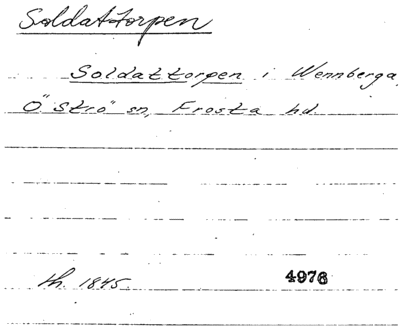 Soldattorpen
Soldattorpen i Wennberga,
Öströ sn, Frosta hd.
th. 1845. 4976